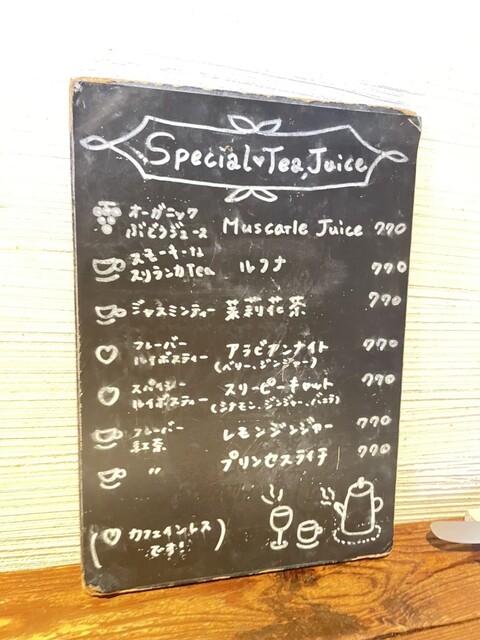 Special♥Tea, Juice
オーガニック
ぶどうジュース Muscatle Juice 770
スモーキーな
スリランカTea ルフナ 770
ジャスミンティー 茉莉花茶 770
フレーバー
ルイボスティー アラビアンナイト 770
(ベリー、ジンジャー)
スパイシー
ルイボスティー スリーピーキャット 770
(シナモン、ジンジャー、バニラ)
フレーバー
紅茶 レモンジンジャー 770
〃 プリンセスライチ 770
(♡カフェインレス
です!)